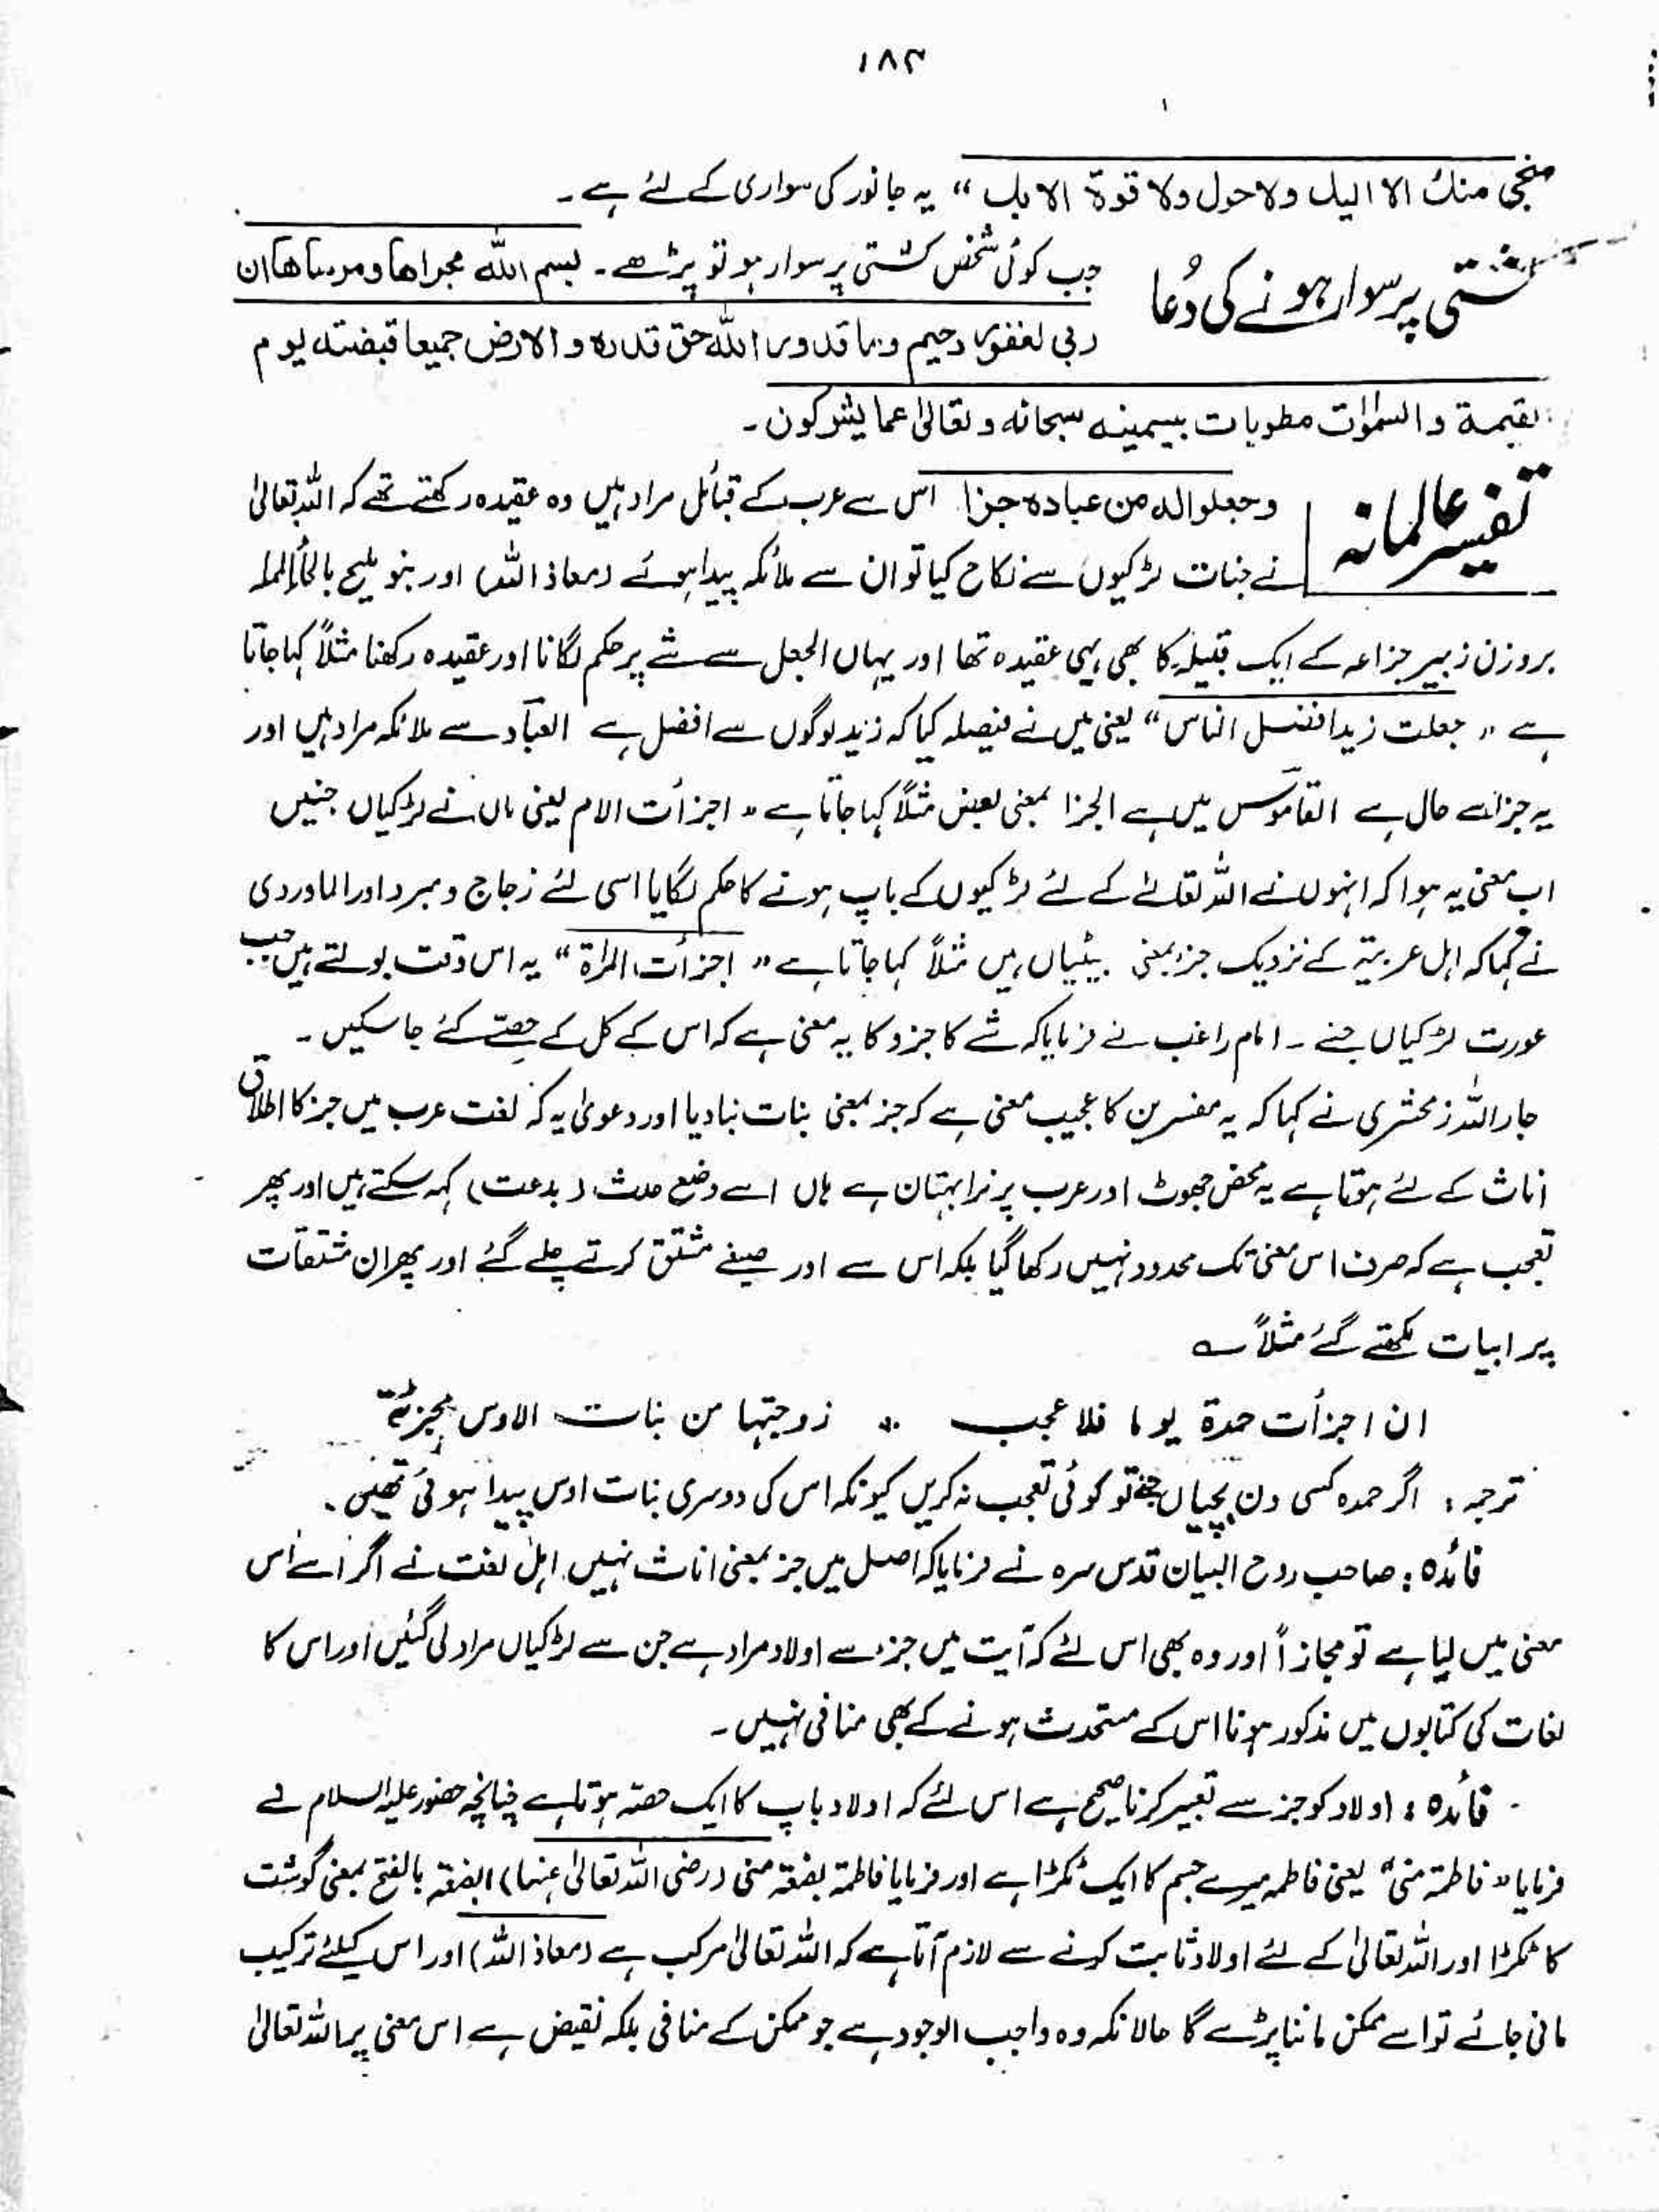 ۱۸۳
منجی منک الا الیک ولا حول ولا قوۃ الا بک “ یہ جانور کی سواری کے لئے ہے ۔
کشتی پر سوار ہونے کی دُعا
جب کوئی شخص کشتی پر سوار ہو تو پڑھے ۔ بسم اللہ مجراھا و مرساھا ان
ربی لغفور رحیم وما قدروا اللہ حق قدرہ و الارض جمیعا قبضتہ یوم
لقیمۃ والسمٰوٰت مطویات بیمینہ سبحانہ و تعالیٰ عما یشرکون ۔
تفسیر عالمانہ
وجعلوا لہ من عبادہ جزا اس سے عرب کے قبائل مراد ہیں وہ عقیدہ رکھتے تھے کہ اللہ تعالیٰ
نے جنات لڑکیوں سے نکاح کیا تو ان سے ملائکہ پیدا ہوئے (معاذ اللہ) اور بنو ملیح بالحأ المہملہ
بروزن زبیر جزاعہ کے ایک قبیلہ کا بھی یہی عقیدہ تھا اور یہاں الجعل سے شے پر حکم لگانا اور عقیدہ رکھنا مثلاً کہا جاتا
ہے ” جعلت زیدا افضل الناس “ یعنی میں نے فیصلہ کیا کہ زید لوگوں سے افضل ہے العبآد سے ملائکہ مراد ہیں اور
یہ جزاً سے حال ہے القاموس میں ہے الجزا بمعنی بعض مثلاً کہا جاتا ہے ” اجزأت الام یعنی ماں نے لڑکیاں جنیں
اب معنی یہ ہوا کہ انہوں نے اللہ تعالےٰ کے لئے لڑکیوں کے باپ ہونے کا حکم لگایا اسی لئے زجاج و مبرد اور الماوردی
نے کہا کہ اہل عربیۃ کے نزدیک جزء بمعنی بیٹیاں ہیں مثلاً کہا جاتا ہے ” اجزأت المرأۃ “ یہ اس وقت بولتے ہیں جب
عورت لڑکیاں جنے ۔ امام راغب نے فرمایا کہ شے کا جزو کا یہ معنی ہے کہ اس کے کل کے حصّے کئے جا سکیں ۔
جار اللہ زمحشری نے کہا کہ یہ مفسرین کا عجیب معنی ہے کہ جز بمعنی بنات بنا دیا اور دعویٰ یہ کہ لغت عرب میں جز کا اطلاق
اناث کے لئے ہوتا ہے یہ محض جھوٹ اور عرب پر نرا بہتان ہے ہاں اسے وضع حدث (بدعت) کہہ سکتے ہیں اور پھر
تعجب ہے کہ صرف اس معنیٰ تک محدود نہیں رکھا گیا بلکہ اس سے اور صیغے مشتق کرتے چلے گئے اور پھر ان مشتقات
پر ابیات لکھتے گئے مثلاً ؎
ان اجزأت حمدۃ یوما فلا عجب ؞ زوجتہا من بنات الاوس مجزئۃ
ترجمہ : اگر حمدہ کسی دن بچیاں جنے تو کوئی تعجب نہ کریں کیونکہ اس کی دوسری بنات اوس پیدا ہوئی تھیں ۔
فائدہ : صاحب روح البیان قدس سرہ نے فرمایا کہ اصل میں جز بمعنی اناث نہیں اہل لغت نے اگر اسے اس
معنی میں لیا ہے تو مجازاً اور وہ بھی اس لئے کہ آیت میں جزء سے اولاد مراد ہے جن سے لڑکیاں مراد لی گئیں اور اس کا
لغات کی کتابوں میں مذکور ہونا اس کے مستحدث ہونے کے بھی منافی نہیں ۔
فائدہ : اولاد کو جز سے تعبیر کرنا صحیح ہے اس لئے کہ اولاد باپ کا ایک حصّہ ہوتا ہے چنانچہ حضور علیہ السلام نے
فرمایا ” فاطمۃ منی “ یعنی فاطمہ میرے جسم کا ایک ٹکڑا ہے اور فرمایا فاطمۃ بضعۃ منی (رضی اللہ تعالیٰ عنہا) البضعۃ بالفتح بمعنی گوشت
کا ٹکڑا اور اللہ تعالیٰ کے لئے اولاد ثابت کرنے سے لازم آتا ہے کہ اللہ تعالیٰ مرکب ہے (معاذ اللہ) اور اس کیلئے ترکیب
مانی جائے تو اسے ممکن ماننا پڑے گا حالانکہ وہ واجب الوجود ہے جو ممکن کے منافی بلکہ نقیض ہے اس معنی پر اللہ تعالیٰ